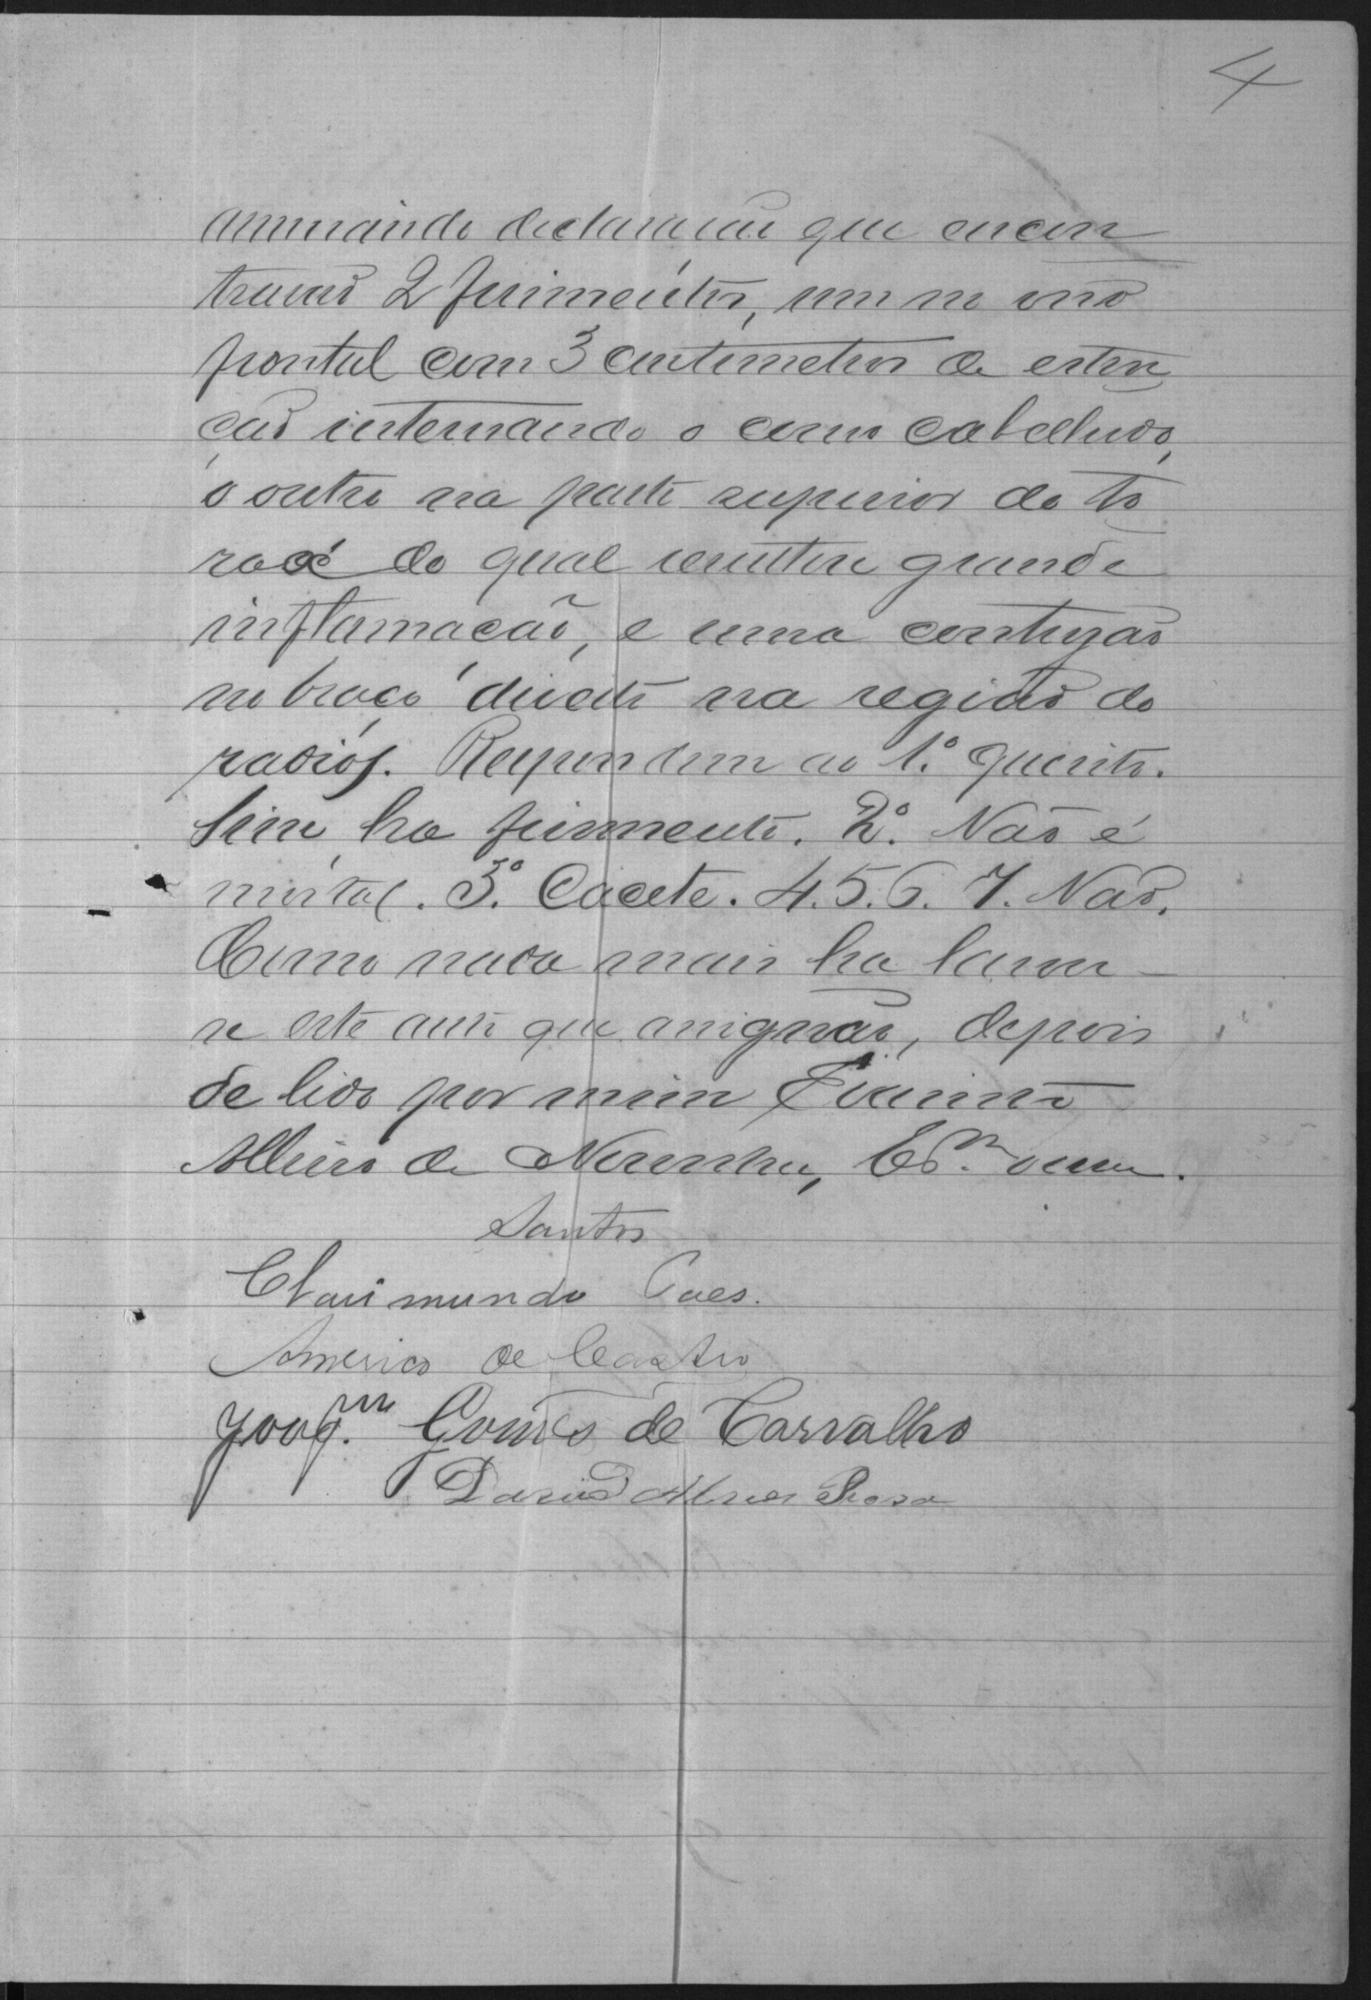 4
declararão que encon
trarão 2 ferimentos, um no osso
frontal com 3 centimetros de exten
ção internando o coro cabelludo,
o outro na parte superior do to
rax do qual grande
inflamação, e uma contusão
no braço direito na região do
radios. Respondem ao 1.º quesito.
Sim ha ferimento. 2.º Não é
mortal. 3.º Cacete. 4. 5. 6. 7. Não.
Como nada mais ha lavra-
se este auto que assignão, depois
de lido por mim
de Noronha, Es.m
Santos
Clarimundo Paes.
Americo de Castro
Joaq.m Gomes de Carvalho
Dario Alves Rosa